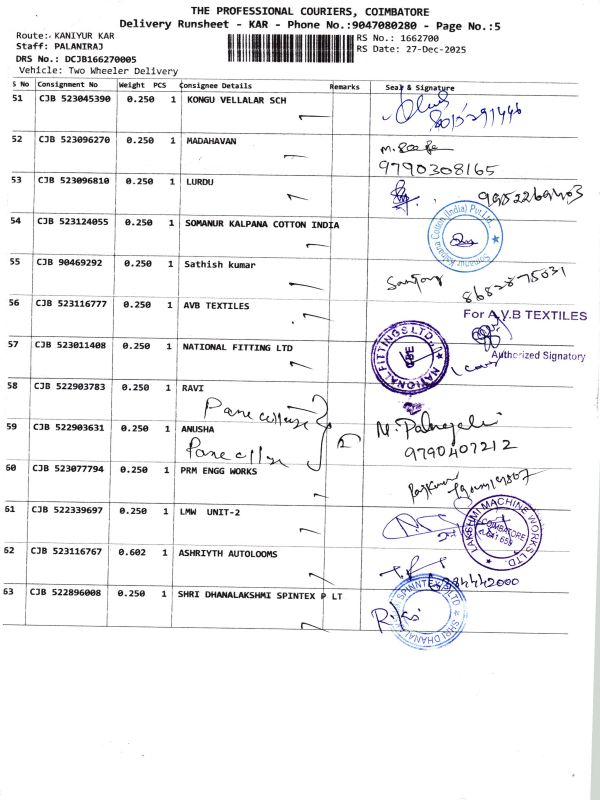 THE PROFESSIONAL COURIERS, COIMBATORE
Delivery Runsheet - KAR - Phone No.:9047080280 - Page No.:5
Route: KANIYUR KAR RS No.: 1662700
Staff: PALANIRAJ RS Date: 27-Dec-2025
DRS No.: DCJB166270005
Vehicle: Two Wheeler Delivery
S No Consignment No Weight PCS Consignee Details Remarks Seal & Signature
51 CJB 523045390 0.250 1 KONGU VELLALAR SCH
52 CJB 523096270 0.250 1 MADAHAVAN
9790308165
53 CJB 523096810 0.250 1 LURDU
54 CJB 523124055 0.250 1 SOMANUR KALPANA COTTON INDIA
Somanur Kalpana Cotton (India) Pvt Ltd.
55 CJB 90469292 0.250 1 Sathish kumar
8682875031
56 CJB 523116777 0.250 1 AVB TEXTILES
For A.V.B TEXTILES
Authorized Signatory
57 CJB 523011408 0.250 1 NATIONAL FITTING LTD
NATIONAL FITTINGS LTD.
58 CJB 522903783 0.250 1 RAVI
59 CJB 522903631 0.250 1 ANUSHA
9790407212
60 CJB 523077794 0.250 1 PRM ENGG WORKS
61 CJB 522339697 0.250 1 LMW UNIT-2
LAKSHMI MACHINE WORKS LTD.
COIMBATORE
62 CJB 523116767 0.602 1 ASHRIYTH AUTOLOOMS
63 CJB 522896008 0.250 1 SHRI DHANALAKSHMI SPINTEX P LT